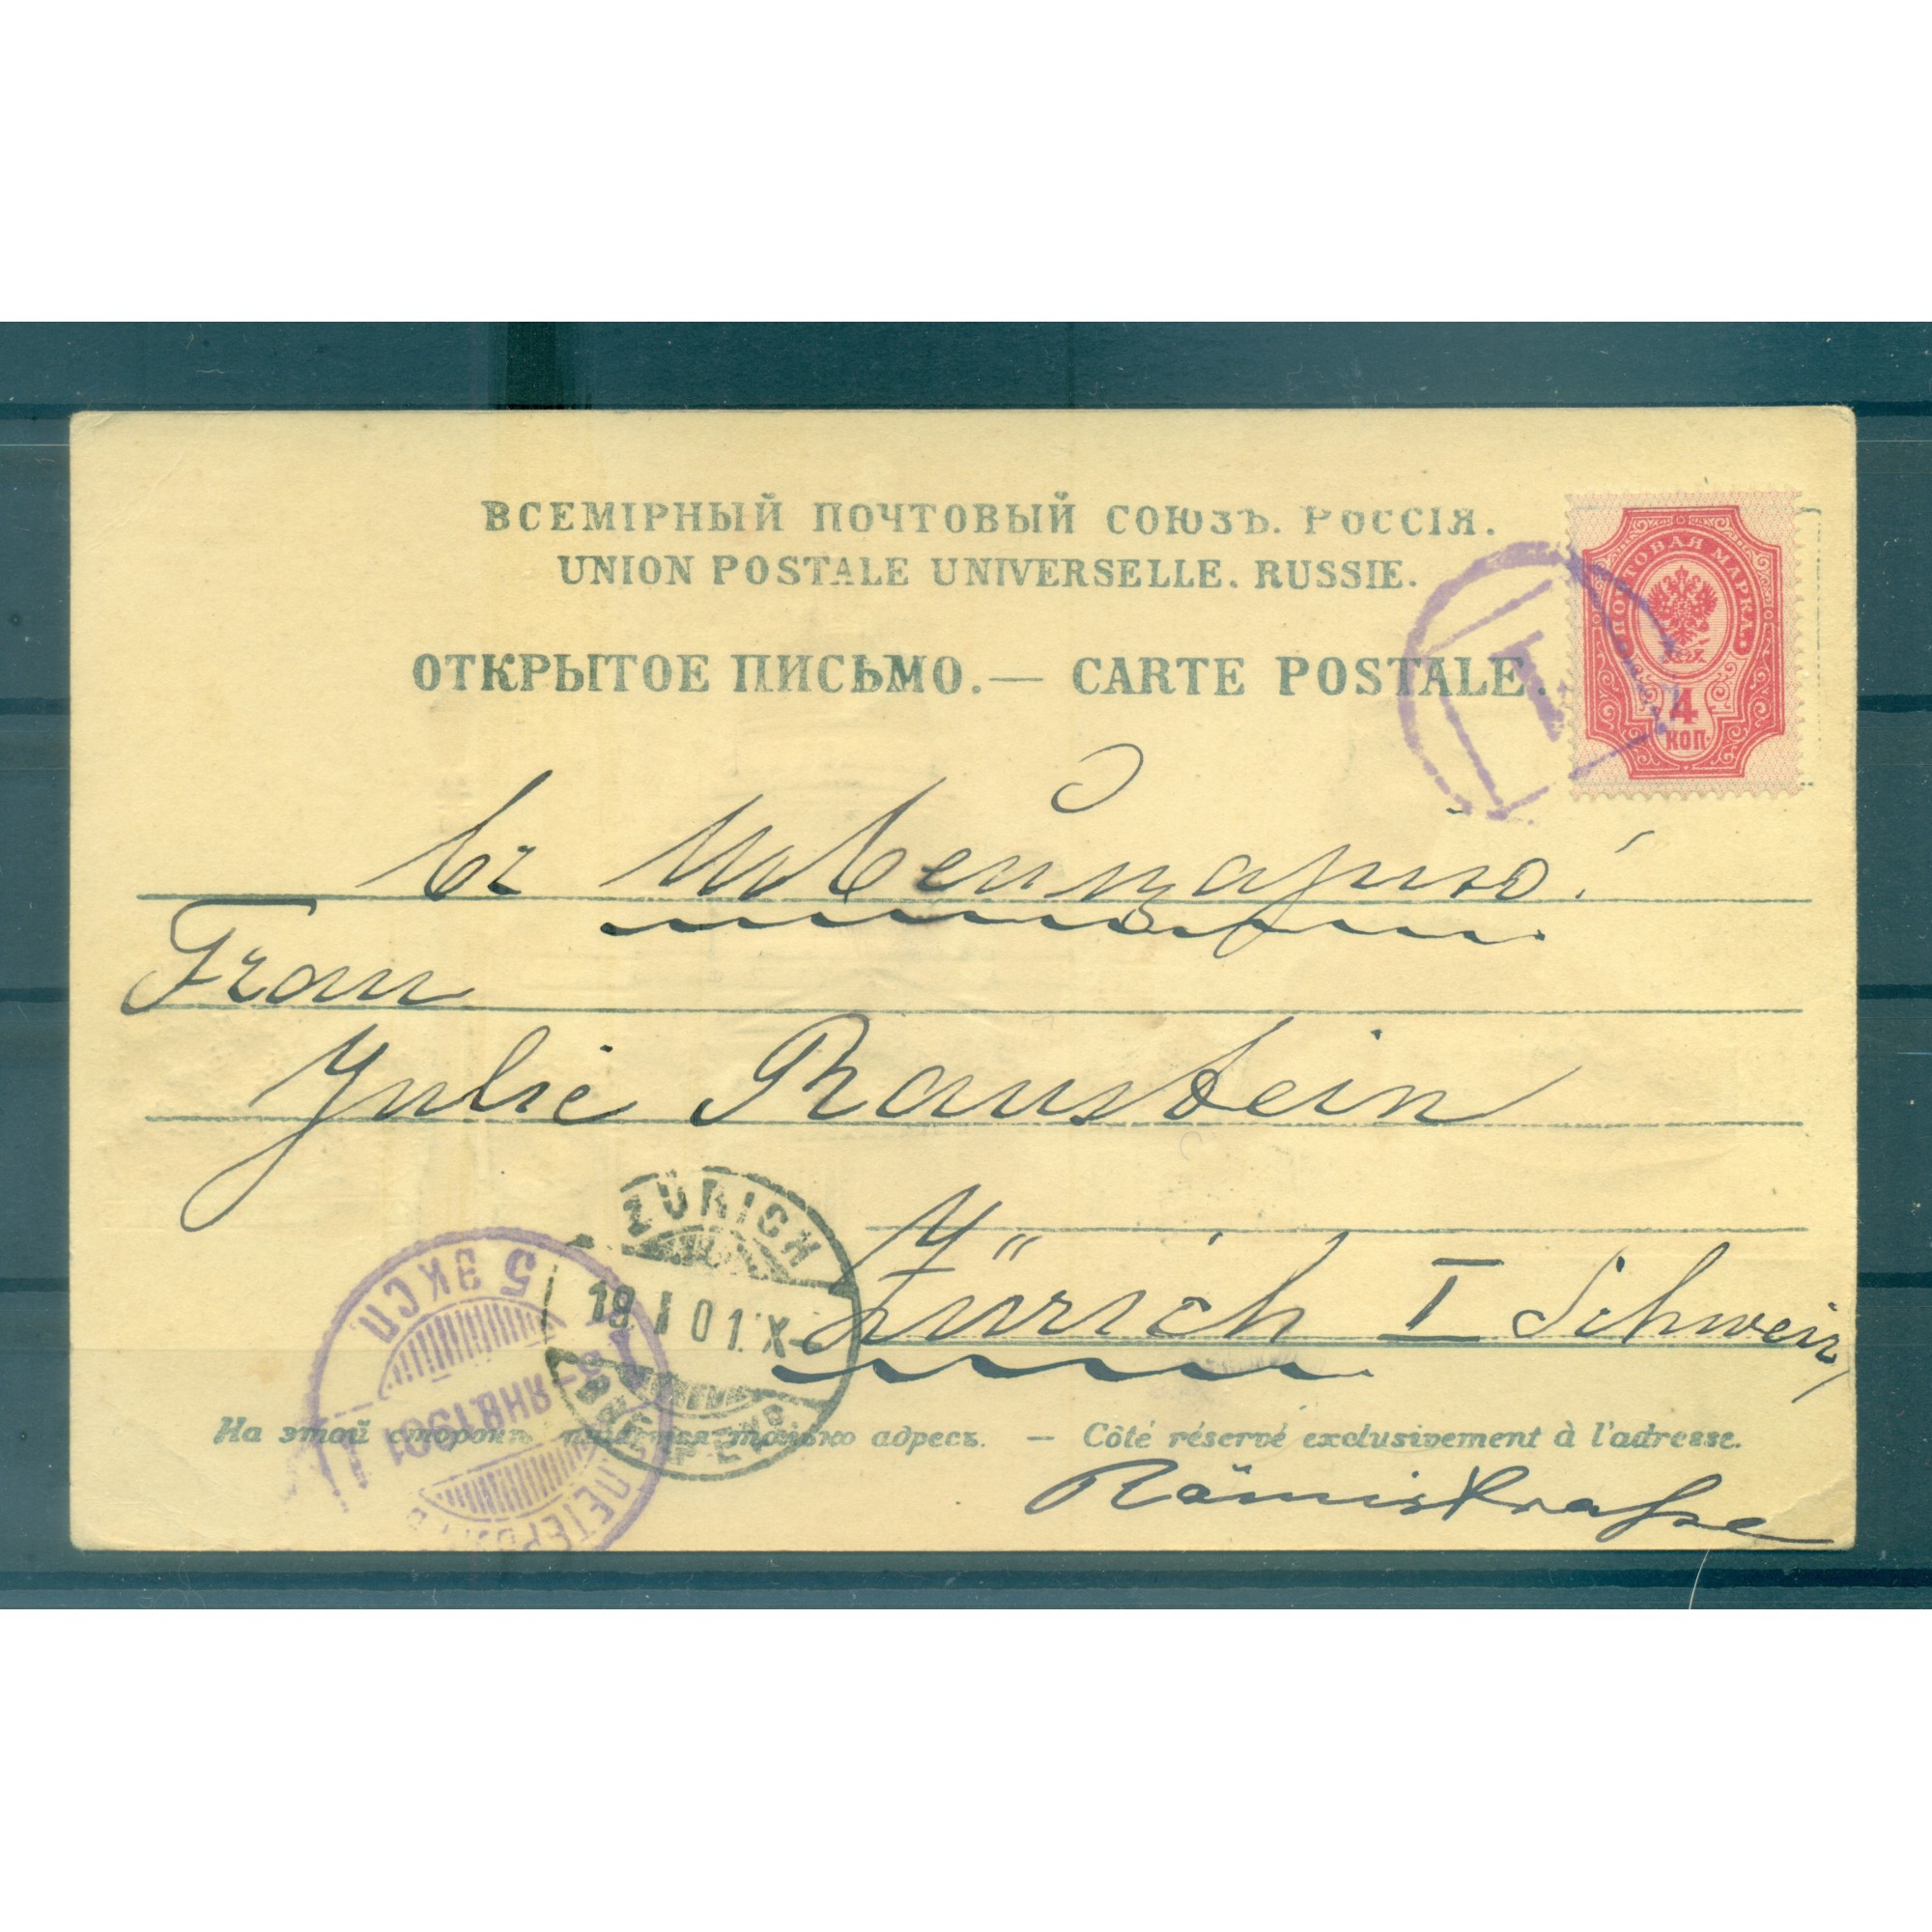 ВСЕМІРНЫЙ ПОЧТОВЫЙ СОЮЗЪ. РОССІЯ.
UNION POSTALE UNIVERSELLE. RUSSIE.
ОТКРЫТОЕ ПИСЬМО. — CARTE POSTALE.
ПОЧТОВАЯ МАРКА.
4
КОП.
1
Въ Швейцарію!
Frau
Julie Raustein
Zürich I Schweiz
ZÜRICH
19. I 01. X-
5 ЭКСП
3-ЯНВ.1901
1
На этой сторонѣ пишется только адресъ. — Côté réservé exclusivement à l'adresse.
Rämistraße